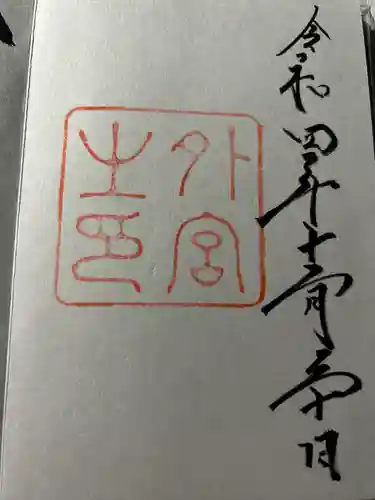 令和四年十二月三十日
外宮
之印